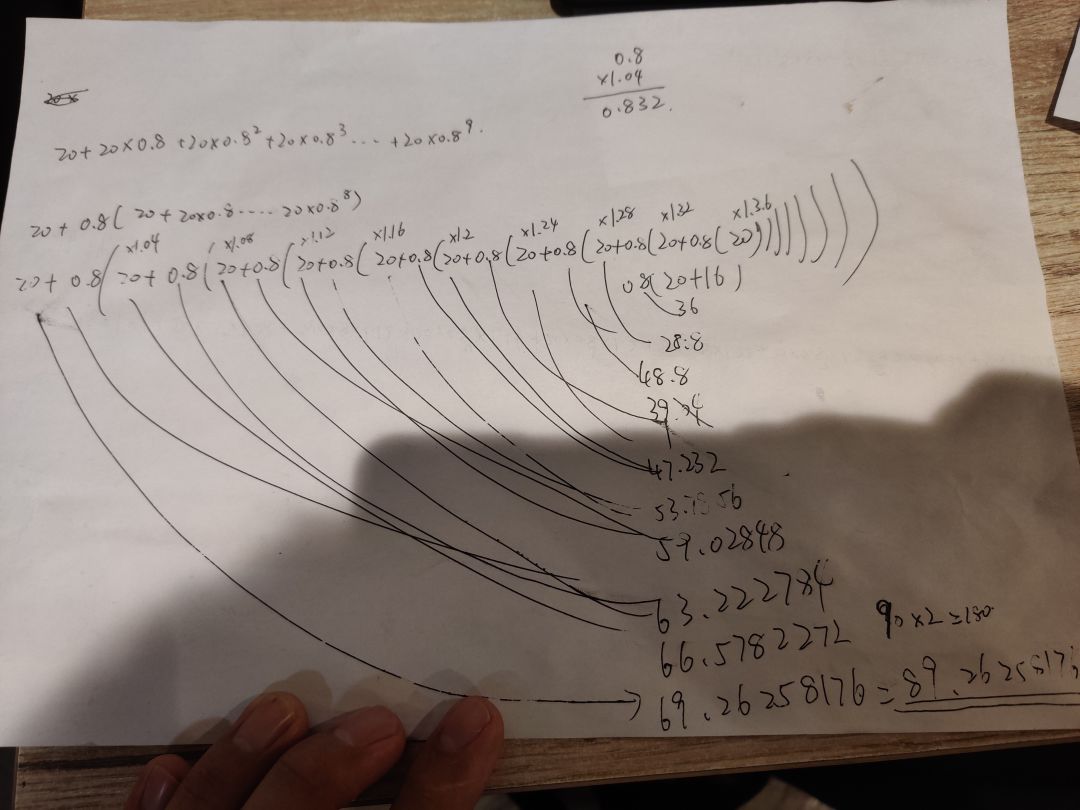 0.8
×1.04
0.832.
20+20×0.8+20×0.8²+20×0.8³....+20×0.8⁹.
20+0.8(20+20×0.8.....20×0.8⁸)
×1.04 ×1.08 ×1.12 ×1.16 ×1.2 ×1.24 ×1.28 ×1.32 ×1.3.6
20+0.8(20+0.8(20+0.8(20+0.8(20+0.8(20+0.8(20+0.8(20+0.8(20+0.8(20)))))))))
0.8(20+16)
36
28.8
48.8
47.232
59.02848
63.222784
90×2=180
66.5782272
69.26258176=89.26258176